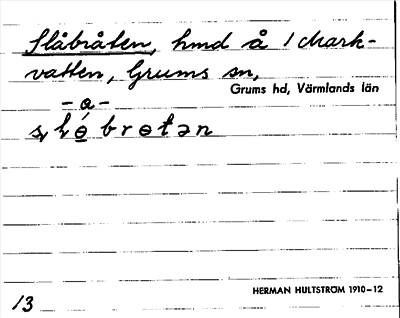 Slåbråten, hmd å 1 Mark-
vatten, Grums sn,
Grums hd, Värmlands län
-a-
HERMAN HULTSTRÖM 1910-12
13